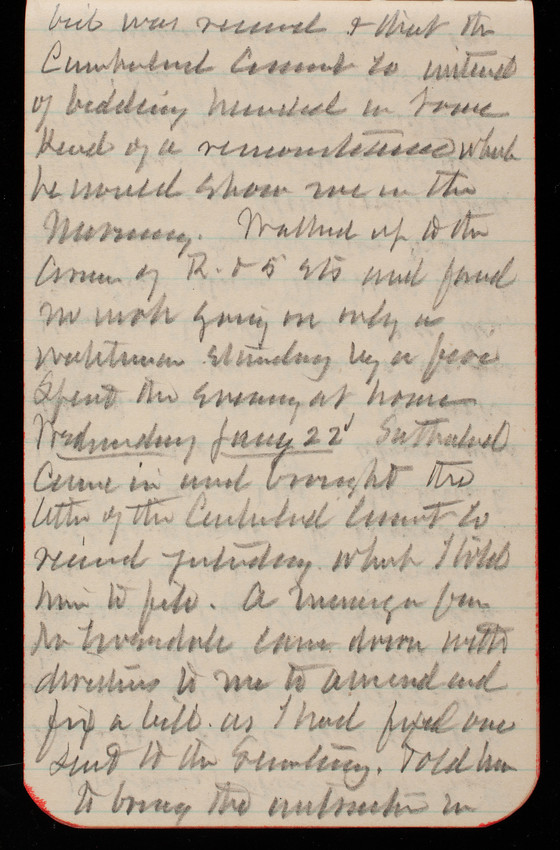 bid was received & that the
Cumberland Cement Co instead
of bidding handed in some
kind of a remonstrance which
he would show me in the
Morning. Walked up to the
Corner of R. & 5 sts and found
no work going on only a
watchman standing by a fire
Spent the evening at home
Wednesday Jany 22d Sutherland
Came in and brought the
letter of the Cumberland Cement Co
received yesterday which I told
him to file. A Messenger from
Mr came down with
directions to me to amend and
fix a bill as I had fixed one
sent to the Secretary. Told him
to bring the instruction in